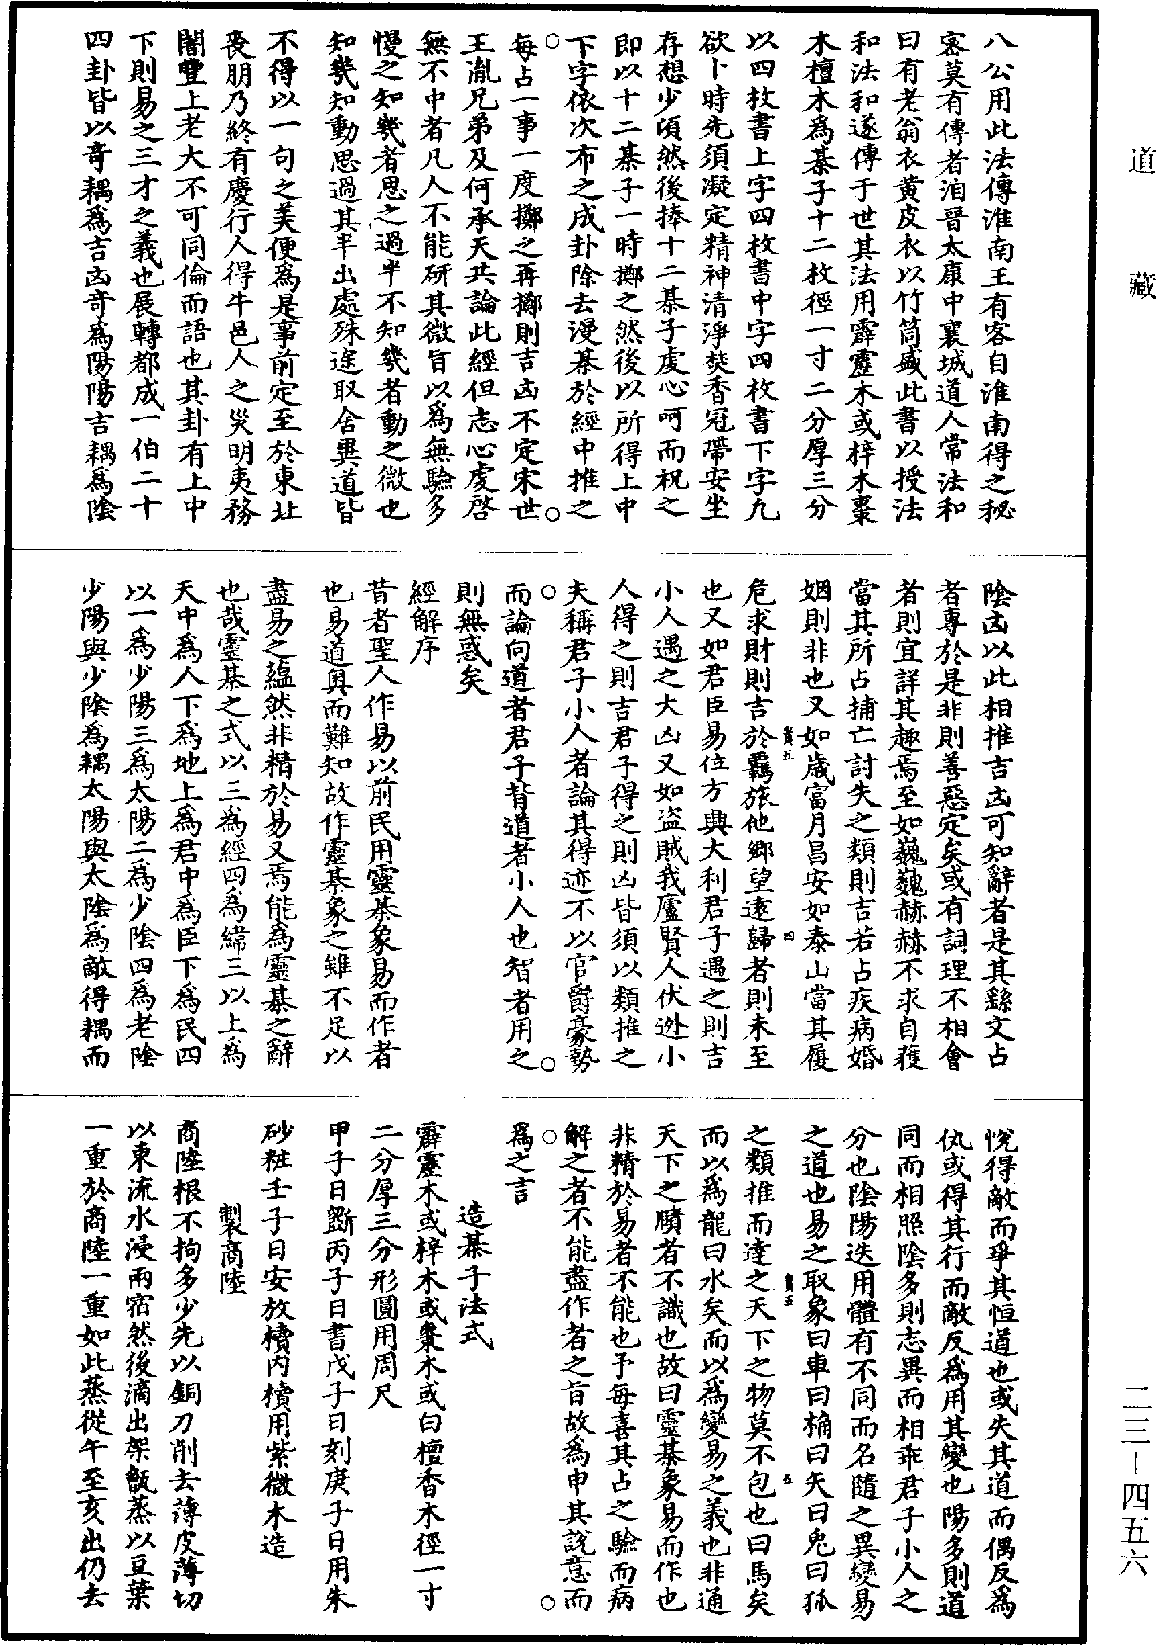 道藏
八公用此法傳淮南王有客自淮南得之秘
密莫有傳者洎晉太康中襄城道人常法和
曰有老翁衣黃皮衣以竹筒盛此書以授法
和法和遂傳于世其法用霹靂木或梓木棗
木檀木為棊子十二枚徑一寸二分厚三分
以四枚書上字四枚書中字四枚書下字凡
欲卜時先須凝定精神清淨焚香冠帶安坐
存想少頃然後捧十二棊子虔心呵而祝之
即以十二棊子一時擲之然後以所得上中
下字依次布之成卦除去漫棊於經中推之
每占一事一度擲之再擲則吉凶不定宋世
王胤兄弟及何承天共論此經但志心虔啓
無不中者凡人不能研其微旨以為無驗多
慢之知幾者思之過半不知幾者動之微也
知幾知動思過其半出處殊途取舍異道皆
不得以一句之美便為是事前定至於東北
喪朋乃終有慶行人得牛邑人之災明夷務
闇豐上老大不可同倫而語也其卦有上中
下則易之三才之義也展轉都成一伯二十
四卦皆以奇耦為吉凶奇為陽陽吉耦為陰
陰凶以此相推吉凶可知辭者是其繇文占
者專於是非則善惡定矣或有詞理不相會
者則宜詳其趣焉至如巍巍赫赫不求自獲
當其所占捕亡討失之類則吉若占疾病婚
姻則非也又如歲富月昌安如泰山當其履
危求財則吉於羈旅他鄉望遠歸者則未至
也又如君臣易位方興大利君子遇之則吉
小人遇之大凶又如盜賊我廬賢人伏逊小
人得之則吉君子得之則凶皆須以類推之
夫稱君子小人者論其得迹不以官爵豪勢
而論向道者君子背道者小人也智者用之
則無惑矣
經解序
昔者聖人作易以前民用靈棊象易而作者
也易道奧而難知故作靈棊象之雖不足以
盡易之蘊然非精於易又焉能為靈棊之辭
也哉靈棊之式以三為經四為緯三以上為
天中為人下為地上為君中為臣下為民四
以一為少陽三為太陽二為少陰四為老陰
少陽與少陰為耦太陽與太陰為敵得耦而
悅得敵而爭其恒道也或失其道而偶反為
仇或得其行而敵反為用其變也陽多則道
同而相照陰多則志異而相乖君子小人之
分也陰陽迭用體有不同而名隨之異變易
之道也易之取象曰車曰桷曰矢曰鬼曰狐
之類推而達之天下之物莫不包也曰馬矣
而以為龍曰水矣而以為變易之義也非通
天下之賾者不識也故曰靈棊象易而作也
非精於易者不能也予每喜其占之驗而病
解之者不能盡作者之旨故為申其說意而
為之言
造棊子法式
霹靂木或梓木或棗木或白檀香木徑一寸
二分厚三分形圓用周尺
甲子日斷丙子日書戊子日刻庚子日用朱
砂粧壬子日安放櫝內櫝用紫微木造
製商陸
商陸根不拘多少先以銅刀削去薄皮薄切
以東流水浸兩宿然後滴出架甑蒸以豆葉
一重於商陸一重如此蒸從午至亥出仍去
二三-四五六